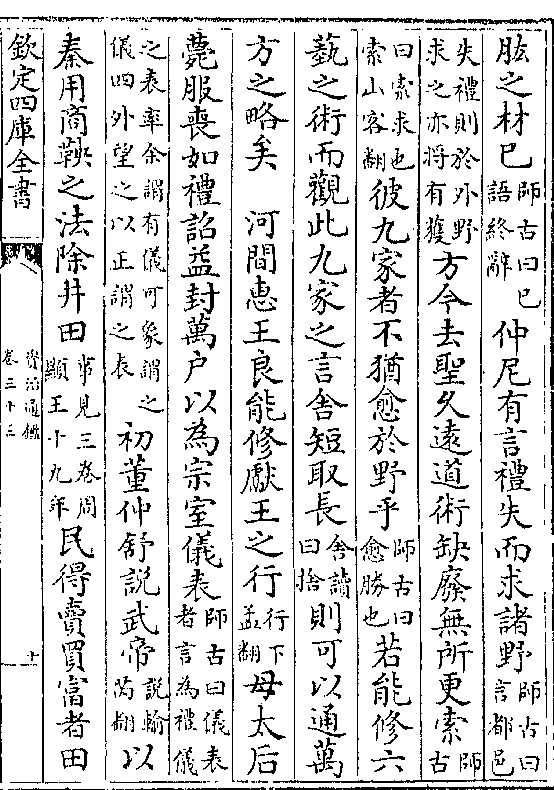 肱之材已師古曰已語終辭仲尼有言禮失而求諸野師古曰言都邑
失禮則於外野求之亦將有獲方今去聖久遠道術缺廢無所更索師古
曰索求也索山客翻彼九家者不猶愈於野乎師古曰愈勝也若能修六
藝之術而觀此九家之言舍短取長舍讀曰捨則可以通萬
方之略矣　河間惠王良能修獻王之行行下孟翻母太后
薨服喪如禮詔益封萬户以為宗室儀表師古曰儀表者言為禮儀
之表率余謂有儀可象謂之儀四外望之以正謂之表初董仲舒説武帝説輸芮翻以
秦用商鞅之法除井田事見三卷周顯王十九年民得賣買富者田
欽定四庫全書
資治通鑑
卷三十三
十